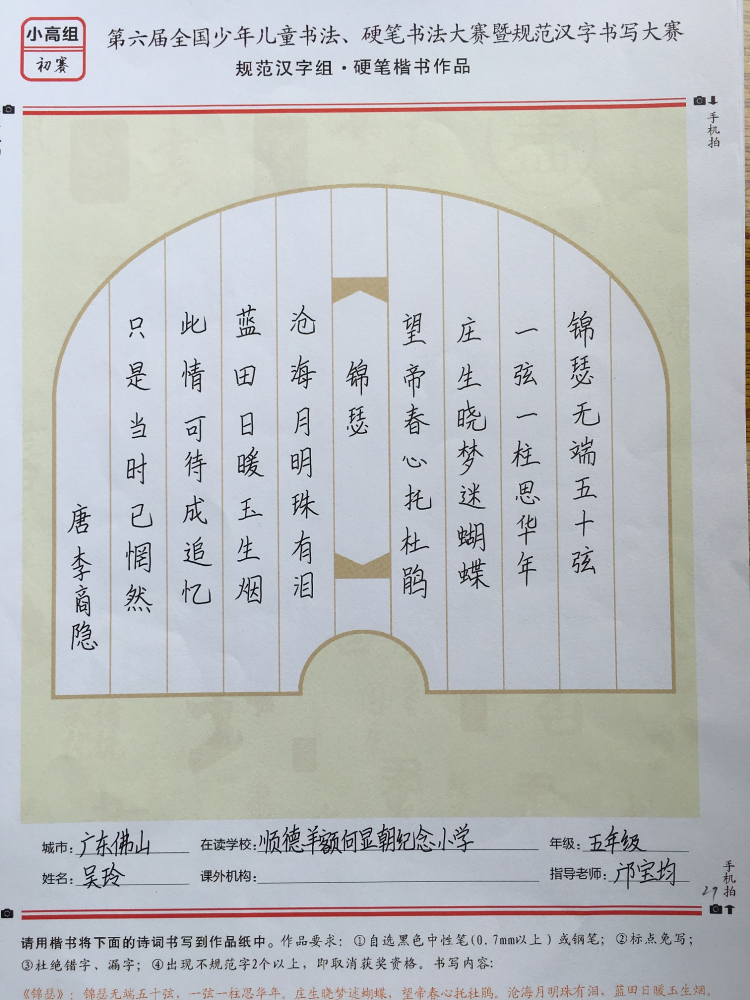 小高组
初赛
第六届全国少年儿童书法、硬笔书法大赛暨规范汉字书写大赛
规范汉字组·硬笔楷书作品
手机拍
锦瑟无端五十弦
一弦一柱思华年
庄生晓梦迷蝴蝶
望帝春心托杜鹃
锦瑟
沧海月明珠有泪
蓝田日暖玉生烟
此情可待成追忆
只是当时已惘然
唐李商隐
城市：广东佛山 在读学校：顺德羊额何显朝纪念小学 年级：五年级
姓名：吴玲 课外机构： 指导老师：邝宝均
手机拍
29
请用楷书将下面的诗词书写到作品纸中。作品要求：①自选黑色中性笔(0.7mm以上)或钢笔；②标点免写；
③杜绝错字、漏字；④出现不规范字2个以上，即取消获奖资格。书写内容：
《锦瑟》：锦瑟无端五十弦，一弦一柱思华年。庄生晓梦迷蝴蝶，望帝春心托杜鹃。沧海月明珠有泪，蓝田日暖玉生烟。